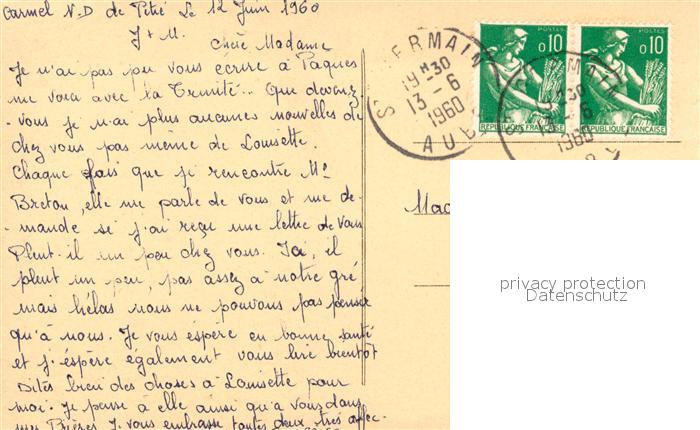 Carmel N-D de Pitié Le 12 Juin 1960
J + M.
Chère Madame
Je n'ai pas pu vous écrire à Pâques
me voici avec la Trinité... Que devenez
-vous je n'ai plus aucunes nouvelles de
chez vous pas même de Louisette.
Chaque fois que je rencontre Me
Breton, elle me parle de vous et me de-
mande si j'ai reçu une lettre de vous
Pleut-il un peu chez vous. Ici, il
pleut un peu, pas assez à notre gré
mais hélas nous ne pouvons pas penser
qu'à nous. Je vous espère en bonne santé
et j'éspère également vous lire bientôt
Dites bien des choses à Louisette pour
moi. Je pense à elle ainsi qu'à vous dans
mes Prières J. vous embrasse toutes deux très affec-
ST GERMAIN
19H30
13-6
1960
AUBE
POSTES
0,10
REPUBLIQUE FRANCAISE
POSTES
0,10
REPUBLIQUE FRANCAISE
1960
Mad
privacy protection
Datenschutz